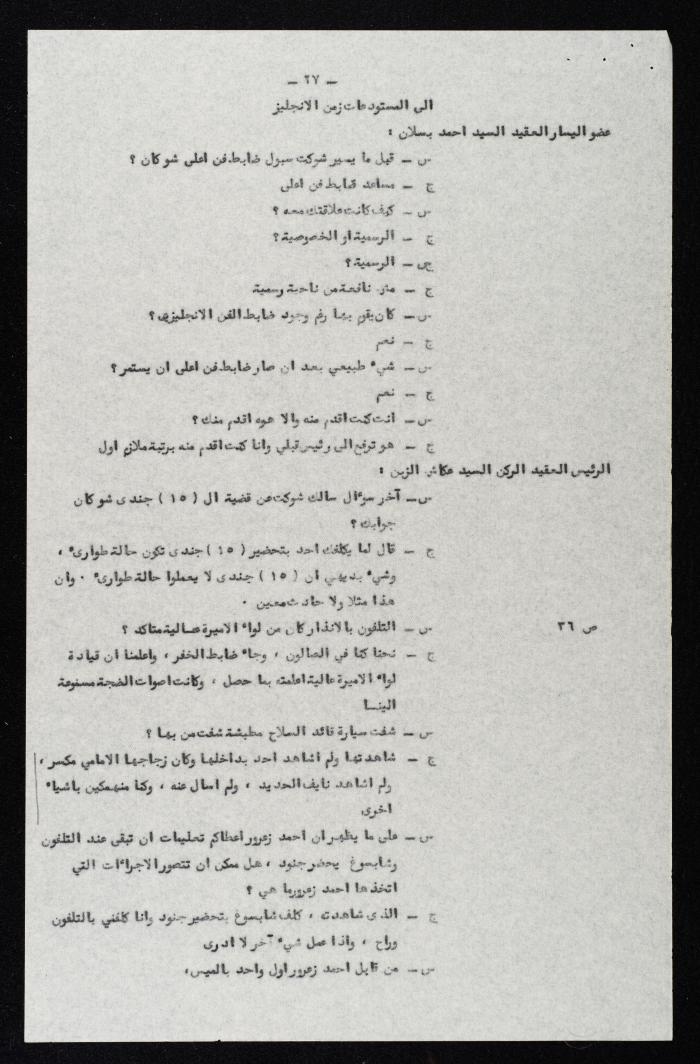 - ٢٧ -
الى المستودعات زمن الانجليز
عضو اليسار العقيد السيد احمد بسلان :
س - قبل ما يصير شوكت سبول ضابط فن اعلى شو كان ؟
ج - مساعد ضابط فن اعلى
س - كيف كانت علاقتك معه ؟
ج - الرسمية او الخصوصية ؟
س - الرسمية ؟
ج - منافعة من ناحية رسمية
س - كان يقوم بها رغم وجود ضابط الفن الانجليزي ؟
ج - نعم
س - شيء طبيعي بعد ان صار ضابط فن اعلى ان يستمر ؟
ج - نعم
س - انت كنت اقدم منه والا هوه اقدم منك ؟
ج - هو ترفع الى رئيس قبلي وانا كنت اقدم منه برتبة ملازم اول
الرئيس العقيد الركن السيد عكاش الزبن :
س - آخر سؤال سالك شوكت عن قضية ال ( ١٥ ) جندى شو كان
جوابك ؟
ج - قال لما يكلفك احد بتحضير ( ١٥ ) جندى تكون حالة طوارىء ،
وشيء بديهي ان ( ١٥ ) جندى لا يعملوا حالة طوارىء . وان
هذا مثلا ولا حادث معين .
س - التلفون بالانذار كان من لواء الاميرة عالية متاكد ؟
ص ٣٦
ج - نحنا كنا في الصالون ، وجاء ضابط الخفر ، واعلمنا ان قيادة
لواء الاميرة عالية اعلمته بما حصل ، وكانت اصوات الضجة مسموعة
الينا
س - شفت سيارة قائد السلاح مطبشة شفت من بها ؟
ج - شاهدتها ولم اشاهد احد بداخلها وكان زجاجها الامامي مكسر ،
ولم اشاهد نايف الحديد ، ولم اسال عنه ، وكنا منهمكين باشياء
اخرى
س - على ما يظهر ان احمد زعرور اعطاكم تعليمات ان تبقى عند التلفون
وشابسوغ يحضر جنود ، هل ممكن ان تتصور الاجراءات التي
اتخذها احمد زعرور ما هي ؟
ج - الذى شاهدته ، كلف شابسوغ بتحضير جنود وانا كلفني بالتلفون
وراح ، واذا عمل شيء آخر لا ادرى
س - من قابل احمد زعرور اول واحد بالميس ،